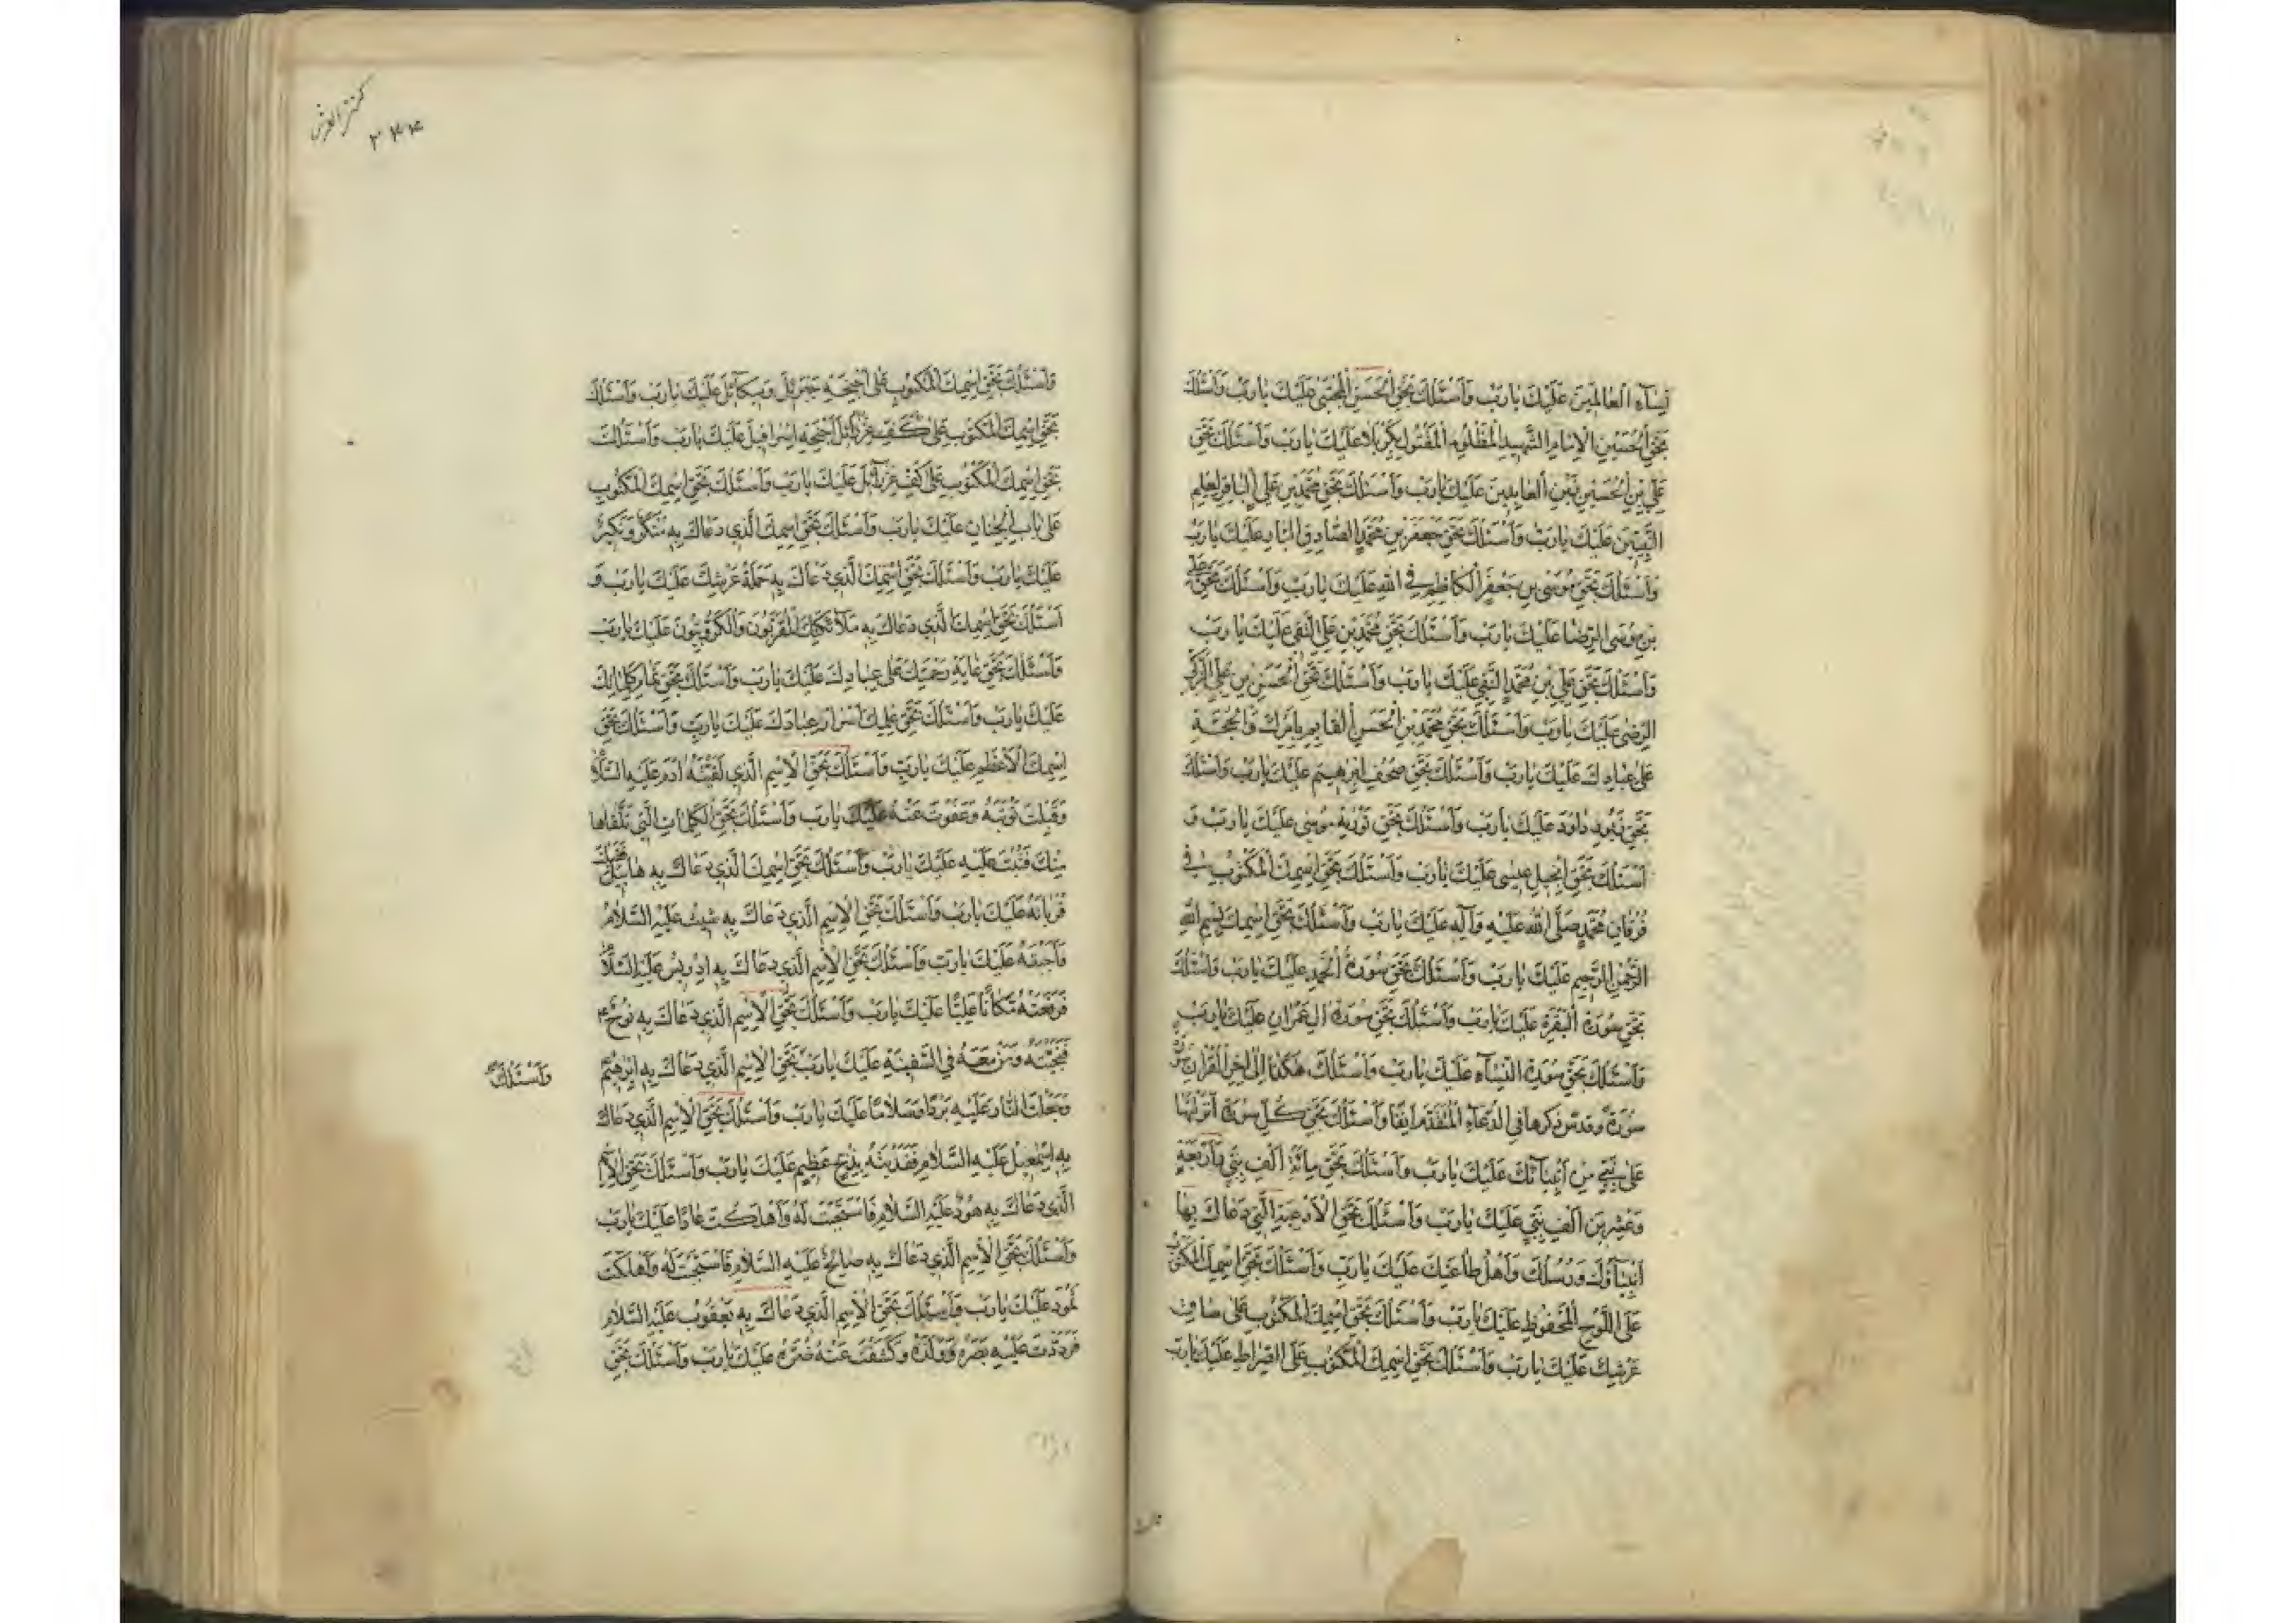 نِسٰآءِ الْعٰالَمِينَ عَلَيْكَ يٰا رَبِّ وَاَسْئَلُكَ بِحَقِّ الْحَسَنِ الْمُجْتَبىٰ عَلَيْكَ يٰا رَبِّ وَاَسْئَلُكَ
بِحَقِّ الْحُسَيْنِ الْاِمٰامِ الشَّهِيدِ الْمَظْلُومِ الْمَقْتُولِ بِكَرْبَلٰا عَلَيْكَ يٰا رَبِّ وَاَسْئَلُكَ بِحَقِّ
عَلِيِّ بْنِ الْحُسَيْنِ زَيْنِ الْعٰابِدِينَ عَلَيْكَ يٰا رَبِّ وَاَسْئَلُكَ بِحَقِّ مُحَمَّدِ بْنِ عَلِيٍّ الْبٰاقِرِ لِعِلْمِ
النَّبِيِّينَ عَلَيْكَ يٰا رَبِّ وَاَسْئَلُكَ بِحَقِّ جَعْفَرِ بْنِ مُحَمَّدٍ الصّٰادِقِ الْبٰارِّ عَلَيْكَ يٰا رَبِّ
وَاَسْئَلُكَ بِحَقِّ مُوسَى بْنِ جَعْفَرٍ الْكٰاظِمِ فِي اللّٰهِ عَلَيْكَ يٰا رَبِّ وَاَسْئَلُكَ بِحَقِّ عَلِيِّ
بْنِ مُوسَى الرِّضٰا عَلَيْكَ يٰا رَبِّ وَاَسْئَلُكَ بِحَقِّ مُحَمَّدِ بْنِ عَلِيٍّ التَّقِي عَلَيْكَ يٰا رَبِّ
وَاَسْئَلُكَ بِحَقِّ عَلِيِّ بْنِ مُحَمَّدٍ النَّقِي عَلَيْكَ يٰا رَبِّ وَاَسْئَلُكَ بِحَقِّ الْحَسَنِ بْنِ عَلِيٍّ الزَّكِيِّ
الرَّضِيِّ عَلَيْكَ يٰا رَبِّ وَاَسْئَلُكَ بِحَقِّ مُحَمَّدِ بْنِ الْحَسَنِ الْقٰايِمِ بِاَمْرِكَ وَالْحُجَّةِ
عَلىٰ عِبٰادِكَ عَلَيْكَ يٰا رَبِّ وَاَسْئَلُكَ بِحَقِّ صُحُفِ اِبْرٰهِيمَ عَلَيْكَ يٰا رَبِّ وَاَسْئَلُكَ
بِحَقِّ زَبُورِ دٰاوُدَ عَلَيْكَ يٰا رَبِّ وَاَسْئَلُكَ بِحَقِّ تَوْرٰيةِ مُوسىٰ عَلَيْكَ يٰا رَبِّ وَ
اَسْئَلُكَ بِحَقِّ اِنْجِيلِ عِيسىٰ عَلَيْكَ يٰا رَبِّ وَاَسْئَلُكَ بِحَقِّ اسْمِكَ الْمَكْتُوبِ فِي
فُرْقٰانِ مُحَمَّدٍ صَلَّى اللّٰهُ عَلَيْهِ وَآلِهِ عَلَيْكَ يٰا رَبِّ وَاَسْئَلُكَ بِحَقِّ اسْمِكَ بِسْمِ اللّٰهِ
الرَّحْمٰنِ الرَّحِيمِ عَلَيْكَ يٰا رَبِّ وَاَسْئَلُكَ بِحَقِّ سُورَةِ الْحَمْدِ عَلَيْكَ يٰا رَبِّ وَاَسْئَلُكَ
بِحَقِّ سُورَةِ الْبَقَرَةِ عَلَيْكَ يٰا رَبِّ وَاَسْئَلُكَ بِحَقِّ سُورَةِ اٰلِ عِمْرٰانَ عَلَيْكَ يٰا رَبِّ
وَاَسْئَلُكَ بِحَقِّ سُورَةِ النِّسٰآءِ عَلَيْكَ يٰا رَبِّ وَاَسْئَلُكَ هٰكَذٰا اِلىٰ اٰخِرِ الْقُرْاٰنِ
سُورَةً وَقَدْ ذِكْرُهٰا فِي الدُّعٰآءِ الْمُتَقَدِّمِ اٰنِفًا وَاَسْئَلُكَ بِحَقِّ كُلِّ سُورَةٍ اَنْزَلْتَهٰا
عَلىٰ نَبِيٍّ مِنْ اَنْبِيٰآئِكَ عَلَيْكَ يٰا رَبِّ وَاَسْئَلُكَ بِحَقِّ مِائَةِ اَلْفِ نَبِيٍّ وَاَرْبَعَةٍ
وَعِشْرِينَ اَلْفِ نَبِيٍّ عَلَيْكَ يٰا رَبِّ وَاَسْئَلُكَ بِحَقِّ الْاَدْعِيَةِ الَّتِي دَعٰاكَ بِهٰا
اَنْبِيٰآؤُكَ وَرُسُلُكَ وَاَهْلُ طٰاعَتِكَ عَلَيْكَ يٰا رَبِّ وَاَسْئَلُكَ بِحَقِّ اسْمِكَ الْمَكْتُوبِ
عَلَى اللَّوْحِ الْمَحْفُوظِ عَلَيْكَ يٰا رَبِّ وَاَسْئَلُكَ بِحَقِّ اسْمِكَ الْمَكْتُوبِ عَلىٰ سٰاقِ
عَرْشِكَ عَلَيْكَ يٰا رَبِّ وَاَسْئَلُكَ بِحَقِّ اسْمِكَ الْمَكْتُوبِ عَلَى الصِّرٰاطِ عَلَيْكَ يٰا رَبِّ
كنز العرش
٢٤٤
وَاَسْئَلُكَ بِحَقِّ اسْمِكَ الْمَكْتُوبِ عَلىٰ اَجْنِحَةِ جَبْرَئِلَ وَمِيكٰآئِلَ عَلَيْكَ يٰا رَبِّ وَاَسْئَلُكَ
بِحَقِّ اسْمِكَ الْمَكْتُوبِ عَلىٰ اَجْنِحَةِ اِسْرٰافِيلَ عَلَيْكَ يٰا رَبِّ وَاَسْئَلُكَ
بِحَقِّ اسْمِكَ الْمَكْتُوبِ عَلىٰ كَفِّ عَزْرٰآئِلَ عَلَيْكَ يٰا رَبِّ وَاَسْئَلُكَ بِحَقِّ اسْمِكَ الْمَكْتُوبِ
عَلىٰ بٰابِ الْجِنٰانِ عَلَيْكَ يٰا رَبِّ وَاَسْئَلُكَ بِحَقِّ اسْمِكَ الَّذِي دَعٰاكَ بِهِ مُنْكَرٌ وَنَكِيرٌ
عَلَيْكَ يٰا رَبِّ وَاَسْئَلُكَ بِحَقِّ اسْمِكَ الَّذِي دَعٰاكَ بِهِ حَمَلَةُ عَرْشِكَ عَلَيْكَ يٰا رَبِّ وَ
اَسْئَلُكَ بِحَقِّ اسْمِكَ الَّذِي دَعٰاكَ بِهِ مَلٰآئِكَتُكَ الْمُقَرَّبُونَ وَالْكَرُّوبِيُّونَ عَلَيْكَ يٰا رَبِّ
وَاَسْئَلُكَ بِحَقِّ غٰايَةِ رَحْمَتِكَ عَلىٰ عِبٰادِكَ عَلَيْكَ يٰا رَبِّ وَاَسْئَلُكَ بِحَقِّ تَمٰامِ كَلِمٰاتِكَ
عَلَيْكَ يٰا رَبِّ وَاَسْئَلُكَ بِحَقِّ عِلْمِكَ اَسْرٰارَ عِبٰادِكَ عَلَيْكَ يٰا رَبِّ وَاَسْئَلُكَ بِحَقِّ
اسْمِكَ الْاَعْظَمِ عَلَيْكَ يٰا رَبِّ وَاَسْئَلُكَ بِحَقِّ الْاِسْمِ الَّذِي لَقَّنْتَهُ اٰدَمَ عَلَيْهِ السَّلٰامُ
وَقَبِلْتَ تَوْبَتَهُ وَعَفَوْتَ عَنْهُ عَلَيْكَ يٰا رَبِّ وَاَسْئَلُكَ بِحَقِّ الْكَلِمٰاتِ الَّتِي تَلَقّٰاهٰا
مِنْكَ فَتُبْتَ عَلَيْهِ عَلَيْكَ يٰا رَبِّ وَاَسْئَلُكَ بِحَقِّ اسْمِكَ الَّذِي دَعٰاكَ بِهِ هٰابِيلُ
قُرْبٰانَهُ عَلَيْكَ يٰا رَبِّ وَاَسْئَلُكَ بِحَقِّ الْاِسْمِ الَّذِي دَعٰاكَ بِهِ شِيثُ عَلَيْهِ السَّلٰامُ
فَاَجَبْتَهُ عَلَيْكَ يٰا رَبِّ وَاَسْئَلُكَ بِحَقِّ الْاِسْمِ الَّذِي دَعٰاكَ بِهِ اِدْرِيسُ عَلَيْهِ السَّلٰامُ
فَرَفَعْتَهُ مَكٰانًا عَلِيًّا عَلَيْكَ يٰا رَبِّ وَاَسْئَلُكَ بِحَقِّ الْاِسْمِ الَّذِي دَعٰاكَ بِهِ نُوحٌ
فَنَجَّيْتَهُ وَمَنْ مَعَهُ فِي السَّفِينَةِ عَلَيْكَ يٰا رَبِّ بِحَقِّ الْاِسْمِ الَّذِي دَعٰاكَ بِهِ اِبْرٰهِيمُ
وَاَسْئَلُكَ
وَجَعَلْتَ النّٰارَ عَلَيْهِ بَرْدًا وَسَلٰامًا عَلَيْكَ يٰا رَبِّ وَاَسْئَلُكَ بِحَقِّ الْاِسْمِ الَّذِي دَعٰاكَ
بِهِ اِسْمٰعِيلُ عَلَيْهِ السَّلٰامُ فَفَدَيْتَهُ بِذِبْحٍ عَظِيمٍ عَلَيْكَ يٰا رَبِّ وَاَسْئَلُكَ بِحَقِّ الْاِسْمِ
الَّذِي دَعٰاكَ بِهِ هُودٌ عَلَيْهِ السَّلٰامُ فَاسْتَجَبْتَ لَهُ وَاَهْلَكْتَ عٰادًا عَلَيْكَ يٰا رَبِّ
وَاَسْئَلُكَ بِحَقِّ الْاِسْمِ الَّذِي دَعٰاكَ بِهِ صٰالِحٌ عَلَيْهِ السَّلٰامُ فَاسْتَجَبْتَ لَهُ وَاَهْلَكْتَ
ثَمُودَ عَلَيْكَ يٰا رَبِّ وَاَسْئَلُكَ بِحَقِّ الْاِسْمِ الَّذِي دَعٰاكَ بِهِ يَعْقُوبُ عَلَيْهِ السَّلٰامُ
فَرَدَدْتَ عَلَيْهِ بَصَرَهُ وَوَلَدَهُ وَكَشَفْتَ عَنْهُ ضُرَّهُ عَلَيْكَ يٰا رَبِّ وَاَسْئَلُكَ بِحَقِّ